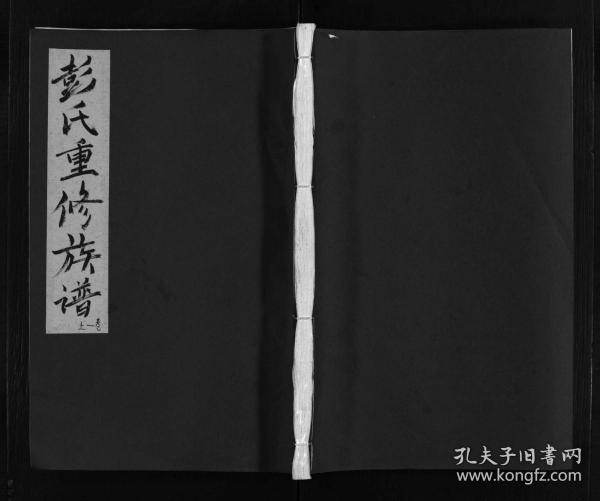 彭氏重修族谱
卷一上
孔夫子旧书网
www.kongfz.com